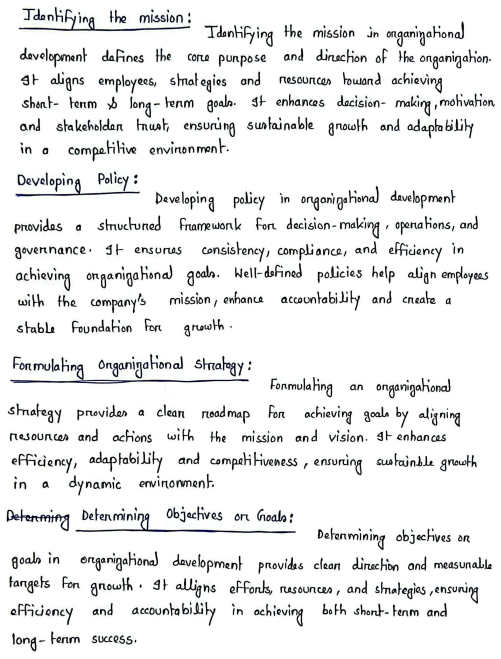 Identifying the mission:
Identifying the mission in organizational
development defines the core purpose and direction of the organization.
It aligns employees, strategies and resources toward achieving
short-term & long-term goals. It enhances decision-making, motivation,
and stakeholder trust, ensuring sustainable growth and adaptability
in a competitive environment.
Developing Policy:
Developing policy in organizational development
provides a structured framework for decision-making, operations, and
governance. It ensures consistency, compliance, and efficiency in
achieving organizational goals. Well-defined policies help align employees
with the company's mission, enhance accountability and create a
stable foundation for growth.
Formulating Organizational Strategy:
Formulating an organizational
strategy provides a clear roadmap for achieving goals by aligning
resources and actions with the mission and vision. It enhances
efficiency, adaptability and competitiveness, ensuring sustainble growth
in a dynamic environment.
Determing Determining Objectives or Goals:
Determining objectives or
goals in organizational development provides clear direction and measurable
targets for growth. It alligns efforts, resources, and strategies, ensuring
efficiency and accountability in achieving both short-term and
long-term success.